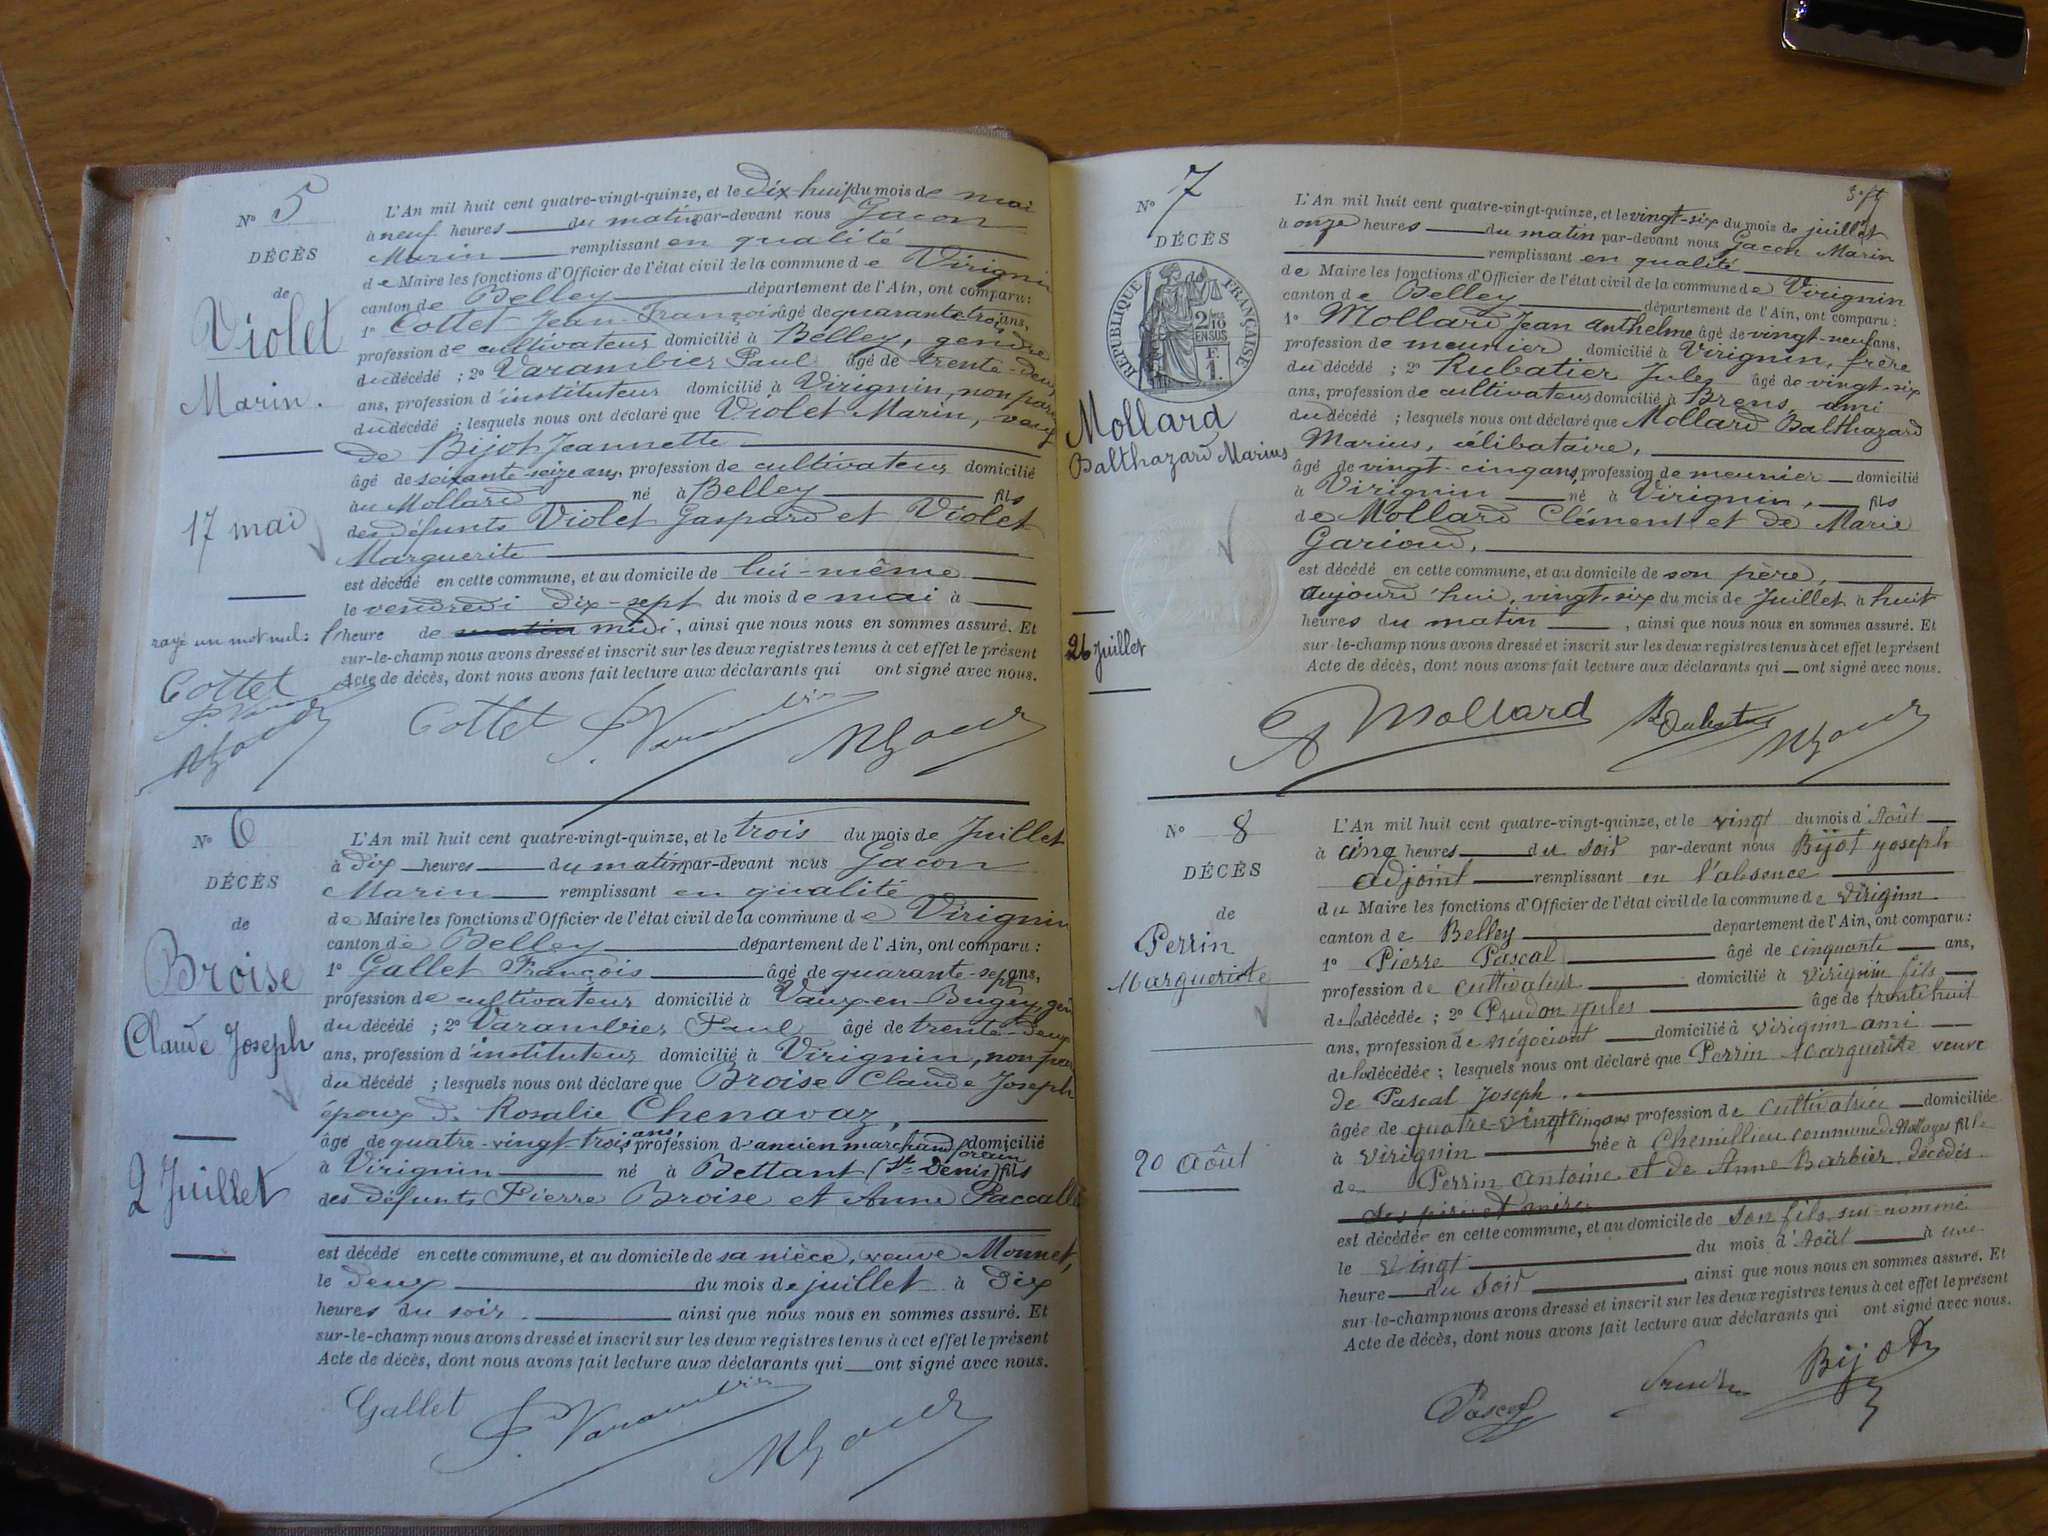 N° 5
DÉCÈS
de
Violet
Marin.
17 mai
rayé un mot nul:
Cottet
L'An mil huit cent quatre-vingt-quinze, et le dix-huit du mois de mai
à neuf heures du matin par-devant nous Gacon
Marin remplissant en qualité
de Maire les fonctions d'Officier de l'état civil de la commune de Virignin
canton de Belley département de l'Ain, ont comparu:
1° Cottet Jean François âgé de quarante-trois ans,
profession de cultivateur domicilié à Belley, gendre
du décédé ; 2° Varambier Paul âgé de trente-deux
ans, profession d'instituteur domicilié à Virignin, non parent
du décédé ; lesquels nous ont déclaré que Violet Marin, veuf
de Bijot Jeannette
âgé de soixante-seize ans, profession de cultivateur domicilié
au Mollard né à Belley fils
des défunts Violet Gaspard et Violet
Marguerite
est décédé en cette commune, et au domicile de lui-même
le vendredi dix-sept du mois de mai à
1 heure de matin midi, ainsi que nous nous en sommes assuré. Et
sur-le-champ nous avons dressé et inscrit sur les deux registres tenus à cet effet le présent
Acte de décès, dont nous avons fait lecture aux déclarants qui ont signé avec nous.
Cottet P. Varambier MGacon
N° 6
DÉCÈS
de
Broise
Claude Joseph
2 Juillet
L'An mil huit cent quatre-vingt-quinze, et le trois du mois de Juillet
à dix heures du matin par-devant nous Gacon
Marin remplissant en qualité
de Maire les fonctions d'Officier de l'état civil de la commune de Virignin
canton de Belley département de l'Ain, ont comparu :
1° Gallet François âgé de quarante-sept ans,
profession de cultivateur domicilié à Vaux-en-Bugey,
du décédé ; 2° Varambier Paul âgé de trente-deux
ans, profession d'instituteur domicilié à Virignin, non parent
du décédé ; lesquels nous ont déclaré que Broise Claude Joseph
époux de Rosalie Chenavaz,
âgé de quatre-vingt-trois ans, profession d'ancien marchand forain domicilié
à Virignin né à Bettant (St Denis) fils
des défunts Pierre Broise et Anne Paccallet
est décédé en cette commune, et au domicile de sa nièce, veuve Monnet,
le deux du mois de juillet à dix
heures du soir. ainsi que nous nous en sommes assuré. Et
sur-le-champ nous avons dressé et inscrit sur les deux registres tenus à cet effet le présent
Acte de décès, dont nous avons fait lecture aux déclarants qui ont signé avec nous.
Gallet P. Varambier MGacon
N° 7
DÉCÈS
de
RÉPUBLIQUE FRANÇAISE
2/10
EN SUS
F.
1.
Mollard
Balthazard Marius
26 Juillet
L'An mil huit cent quatre-vingt-quinze, et le vingt-six du mois de juillet
à onze heures du matin par-devant nous Gacon Marin
remplissant en qualité
de Maire les fonctions d'Officier de l'état civil de la commune de Virignin
canton de Belley département de l'Ain, ont comparu :
1° Mollard Jean Anthelme âgé de vingt-neuf ans,
profession de meunier domicilié à Virignin, frère
du décédé ; 2° Rubatier Jules âgé de vingt-six
ans, profession de cultivateur domicilié à Brens, ami
du décédé ; lesquels nous ont déclaré que Mollard Balthazard
Marius, célibataire,
âgé de vingt-cinq ans, profession de meunier domicilié
à Virignin né à Virignin, fils
de Mollard Clément et de Marie
Garioud,
est décédé en cette commune, et au domicile de son père,
aujourd'hui, vingt-six du mois de Juillet à huit
heures du matin , ainsi que nous nous en sommes assuré. Et
sur-le-champ nous avons dressé et inscrit sur les deux registres tenus à cet effet le présent
Acte de décès, dont nous avons fait lecture aux déclarants qui ont signé avec nous.
A Mollard MGacon
N° 8
DÉCÈS
de
Perrin
Marguerite
20 Août
L'An mil huit cent quatre-vingt-quinze, et le vingt du mois d'Août
à cinq heures du soir par-devant nous Bijot Joseph
adjoint remplissant en l'absence
du Maire les fonctions d'Officier de l'état civil de la commune de Virignin
canton de Belley département de l'Ain, ont comparu :
1° Pierre Pascal âgé de cinquante ans,
profession de cultivateur domicilié à Virignin fils
de la décédée ; 2° Prudon Jules âgé de trente huit
ans, profession de négociant domicilié à Virignin ami
de la décédée ; lesquels nous ont déclaré que Perrin Marguerite veuve
de Pascal Joseph.
âgée de quatre-vingt cinq ans profession de cultivatrice domiciliée
à Virignin née à Chemillieu commune de Nattages fille
de Perrin Antoine et de Anne Barbier décédés.
ses père et mère
est décédée en cette commune, et au domicile de son fils sus-nommé
le vingt du mois d'Août à une
heure du soir ainsi que nous nous en sommes assuré. Et
sur-le-champ nous avons dressé et inscrit sur les deux registres tenus à cet effet le présent
Acte de décès, dont nous avons fait lecture aux déclarants qui ont signé avec nous.
Pascal Bijot